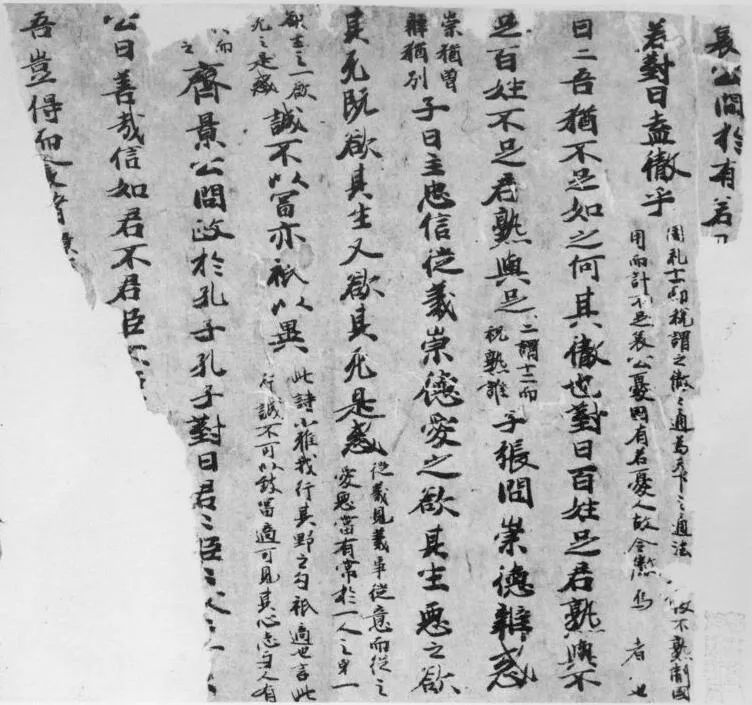 哀公問於有若
若對曰盍徹乎 周礼十一而稅謂之徹〻通為天下之通法
用而計不足哀公憂國有若憂人故令徹焉 者 也
曰二吾猶不足如之何其徹也對曰百姓足君熟與不
足百姓不足君熟與足 二謂十二而
稅熟誰 子張問崇德辯惑
崇猶曽
辯猶別 子曰主忠信從義崇德愛之欲其生惡之欲
其死既欲其生又欲其死是惑 從義見義事從意而從之
愛惡當有常於一人之身一
欲生之一欲
死之是惑 誠不以冨亦祇以異 此詩小雅我行其野之句祇適也言此
行誠不可以致冨適可見其心志与人有
之 齊景公問政於孔子孔子對曰君〻臣〻父〻
公曰善哉信如君不君臣不
吾豈得而食諸